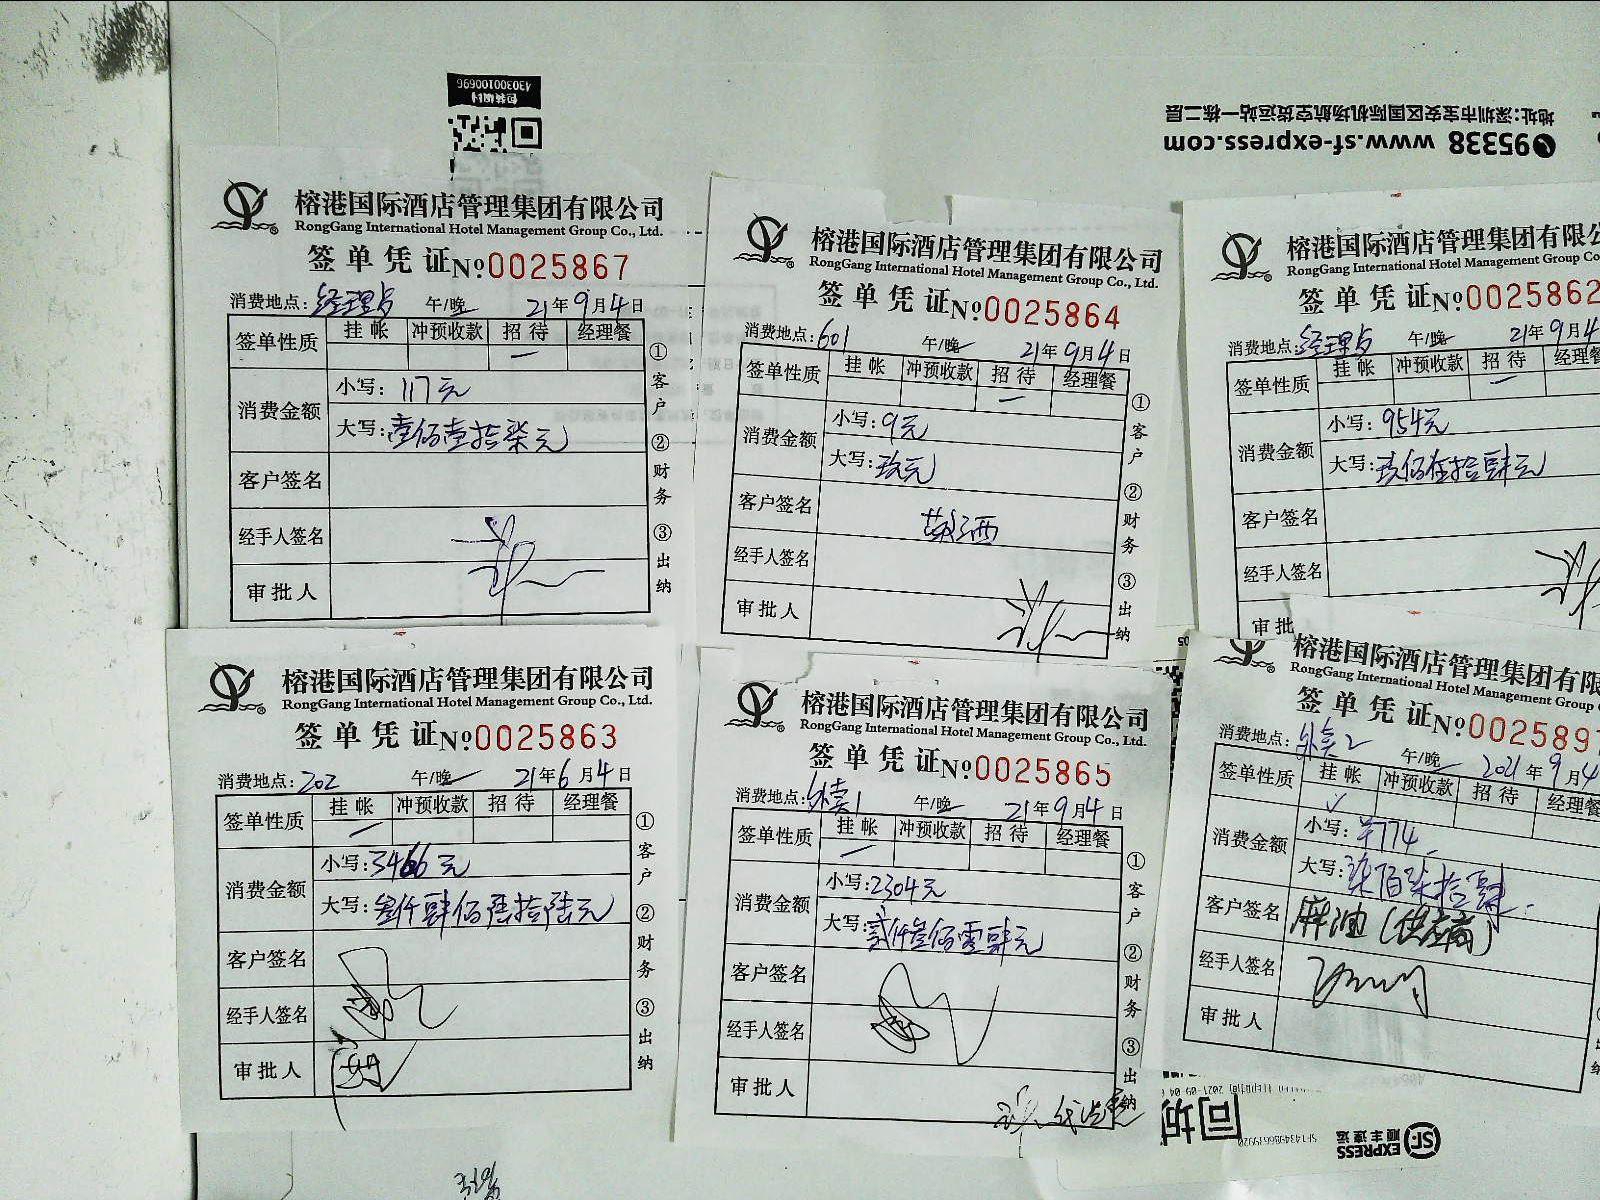 榕港国际酒店管理集团有限公司
RongGang International Hotel Management Group Co., Ltd.
签单凭证 № 0025867
消费地点: 经理房 午/晚 21年9月4日
签单性质 挂帐 冲预收款 招待 经理餐
消费金额 小写: 117元
大写: 壹佰壹拾柒元
客户签名
经手人签名
审批人
①客户 ②财务 ③出纳
榕港国际酒店管理集团有限公司
RongGang International Hotel Management Group Co., Ltd.
签单凭证 № 0025864
消费地点: 601 午/晚 21年9月4日
签单性质 挂帐 冲预收款 招待 经理餐
消费金额 小写: 9元
大写: 玖元
客户签名
经手人签名
审批人
①客户 ②财务 ③出纳
榕港国际酒店管理集团有限公
RongGang International Hotel Management Group Co.
签单凭证 № 0025862
消费地点: 经理房 午/晚 21年9月4
签单性质 挂帐 冲预收款 招待 经理餐
消费金额 小写: 954元
大写: 玖佰伍拾肆元
客户签名
经手人签名
审批
榕港国际酒店管理集团有限公司
RongGang International Hotel Management Group Co., Ltd.
签单凭证 № 0025863
消费地点: 202 午/晚 21年6月4日
签单性质 挂帐 冲预收款 招待 经理餐
消费金额 小写: 3466元
大写: 叁仟肆佰陆拾陆元
客户签名
经手人签名
审批人
①客户 ②财务 ③出纳
榕港国际酒店管理集团有限公司
RongGang International Hotel Management Group Co., Ltd.
签单凭证 № 0025865
消费地点: 外卖1 午/晚 21年9月4日
签单性质 挂帐 冲预收款 招待 经理餐
消费金额 小写: 2304元
大写: 贰仟叁佰零肆元
客户签名
经手人签名
审批人
①客户 ②财务 ③出纳
榕港国际酒店管理集团有限
RongGang International Hotel Management Group
签单凭证 № 0025897
消费地点: 外卖2 午/晚 2021年9月4
签单性质 挂帐 冲预收款 招待 经理餐
消费金额 小写: ¥774
大写: 柒佰柒拾肆
客户签名 麻油(供应商)
经手人签名
审批人
95338 www.sf-express.com
地址:深圳市宝安区国际机场航空货运站一栋二层
430300100696
SF EXPRESS
顺丰速运